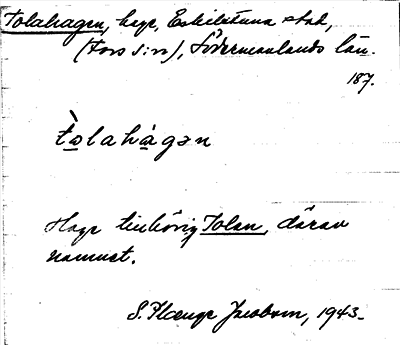 Tolahagen, hage, Eskilstuna stad,
(Fors s:n), Södermanlands län.
187.
tòlahàgən
Hage tillhörig Tolan, därav
namnet.
S. Plænge Jacobson, 1943.